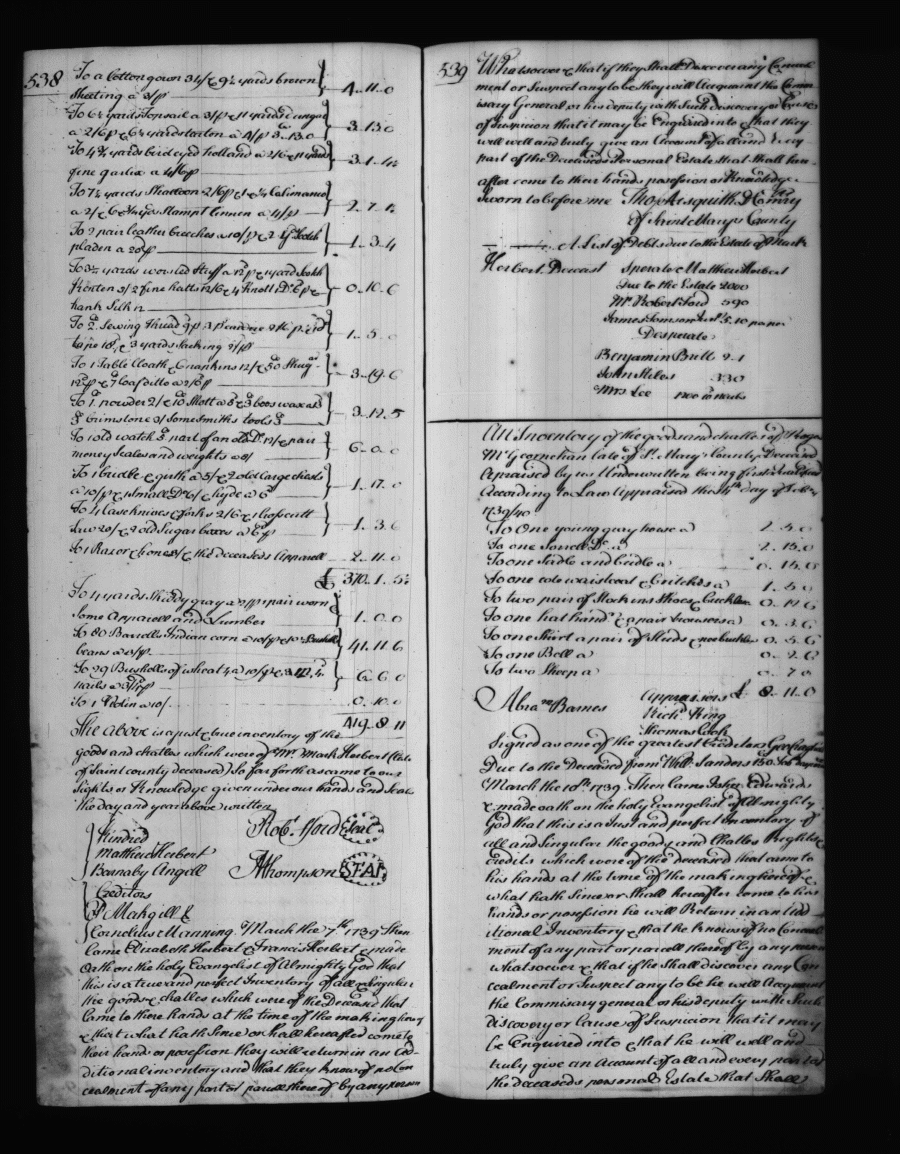 538
To a Cotton gown 34/ & 9½ yards brown
Sheeting a 3/p 4..11..0
To 6½ yards Topsail a 3/p & 11 yards
a 2/6 p & 6½ yards tarton a 4/p 3..13..0
To 4¾ yards bird eyed holland a 2/6 & 11 yards
fine garlix a 4/6 p 3..1..4½
To 7½ yards Shalloon 2/6 p & 1¼ Calimanco
a 2/ & 6 yds Stampt linnen a 4/p 2..7..
To 2 pair leather breeches a 10/p & 2 yds Scotch
pladen a 20d p 1..3..4
To 3½ yards worsted Stuff a 12d p & 1 yard Scotch
3/2 fine hatts 12/6 & 4 Do 6 p &
hank Silk 0..10..6
To 2 Sewing thread
tape 18d, & 3 yards Sacking 2/p 1..5..0
To 1 Table Cloath & 6 napkins 12/ & 50
12d p & 7 a 2/6 p 3..19..6
To powder 2/ & 10 Shott a & 3 bees wax a
brimstone 3/ Some Smiths tools 3..12..5
To 1 old watch & part of an old Do 12/ & pair
money Scales and weights a 8/ 6..0..0
To 1 bridle & girth a 5/ & 2 old large chests
a 10/p & 1 Small Do 6/ & hyde a 6 1..17..0
To 4 Case knives & forks 2/6 & 1 Crosscutt
Saw 20/ & 2 old Sugar boxes a 6d p 1..3..6
To 1 Razor & hone 8/ & the deceaseds Apparell 2..11..0
£ 370..1..5½
To 4 yards gray a & 1 pair worn
Some Apparell and Lumber 1..0..0
To 80 Barrells Indian corn a 10/p & 10 Bushells
beans a /p 41..11..6
To 29 Bushells of wheat 4 a 10/p &
nails a 6..6..0
To 1 Violin a 10/ 0..10..0
419..8..11
The above is a just & true inventory of the
goods and chatles which were of Mr. Mark Herbert (late
of Saint county deceased) So far forth as came to our
Sights or Knowledge given under our hands and Seals
the day and year above written
Robt. Ford Seal
Kindred
Matthew Herbert
Barnaby Angell
Thompson SEAL
Creditors
P Makgill &
Cornelius Manning. March the 7th 1739 Then
Came Elizabeth Herbert & Francis Herbert & made
Oath on the holy Evangelist of Almighty God that
this is a true and perfect Inventory of all & Singular
the goods & chatles which were of the Deceased that
Came to there hands at the time of the making hereof
& that what hath Since or Shall hereafter come to
their hands or posession they will return in an Ad-
ditional inventory and that they know of no Con
cealment of any part or parcell there of by any person
539
Whatsoever & that if they Shall Discover any Conceal
ment or Suspect any to be they will Acquaint the Comm
isary General or his deputy with Such discovery or Cause
of Suspicion that it may be Enquired into & that they
will well and truly give an Account of all and Every
part of the Deceaseds Personal Estate that Shall here
after come to their hands posession or Knowledge
Sworn to before me Tho: Aisquith D Comry
Of Saint Marys County
A List of Debts due to the Estate of Mark
Herbert Deceast Sperate Matthew Herbert
Due to the Estate 2000
Mr. Robert Ford 590
James Tomson
Desperate
Benjamin Bull 2..1
John Stiles 330
Mrs Lee
An Inventory of the goods and chattles of
McGeornehan late of St. Mary's County Deceased
Appraised by us Underwritten being first
According to Law Appraised this 4th day of
1739/40
To One young gray horse a 2..5..0
To one Sorrell Do. a 2..15..0
To one Sadle and bridle a 0..15..0
To one cote waistcoat & britches a 1..5..0
To two pair of Stockins Shoes & buckles 0..17..6
To one hat hand & pair trowsers a 0..3..6
To one Shirt a pair of Studs & buckles 0..5..6
To one Bell a 0..2..6
To two Sheep a 0..7..0
£ 8..11..0
Abram Barnes Appraisors
Richd. King
Thomas Cook
Signed as one of the greatest Creditors
Due to the Deceased from Will: Sanders 150
March the 10th 1739 Then Came John Edwards
& made oath on the holy Evangelist of Almighty
God that this is a Just and perfect Inventory of
all and Singular the goods and Chatles Rights &
Credits which were of the deceased that came to
his hands at the time of the making hereof &
what hath Since or Shall hereafter come to his
hands or posession he will Return in an Add
itional Inventory & that he knows of no Conceal
ment of any part or parcell thereof by any person
whatsoever & that if he Shall discover any Con
cealment or Suspect any to be he will Acquaint
the Commisary general or his deputy with Such
discovery or Cause of Suspicion that it may
be Enquired into & that he will well and
truly give an Account of all and every part of
the deceaseds personal Estate that Shall